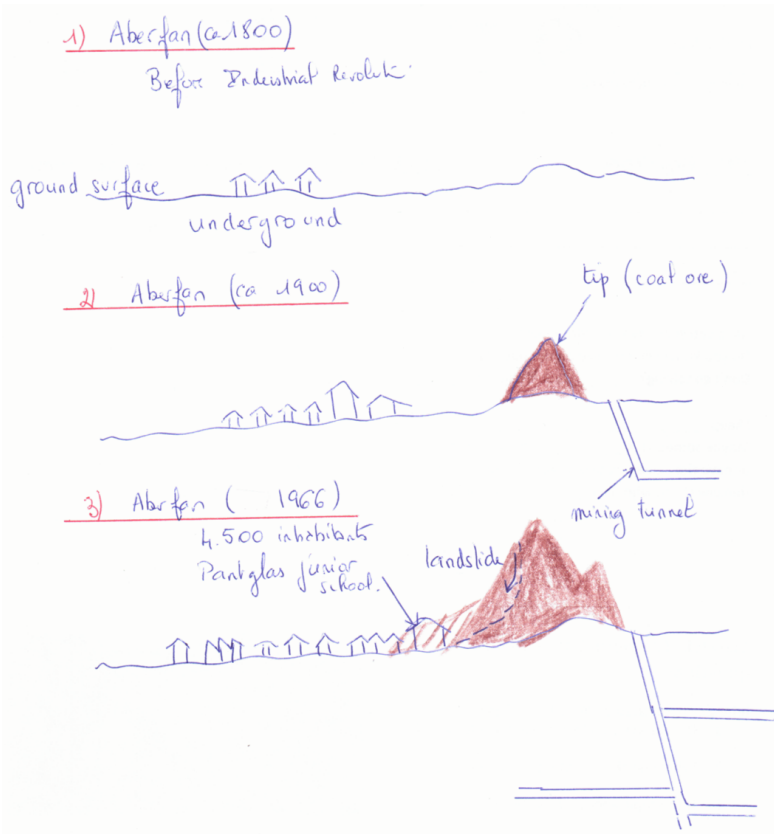 1) Aberfan (ca 1800)
Before Industrial Revolut.
ground surface
underground
2) Aberfan (ca 1900)
tip (coal ore)
mining tunnel
3) Aberfan ( 1966)
4.500 inhabitants
Pantglas junior
school.
landslide